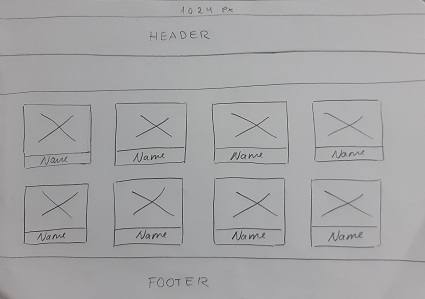 1024 px
HEADER
Name Name Name Name
Name Name Name Name
FOOTER